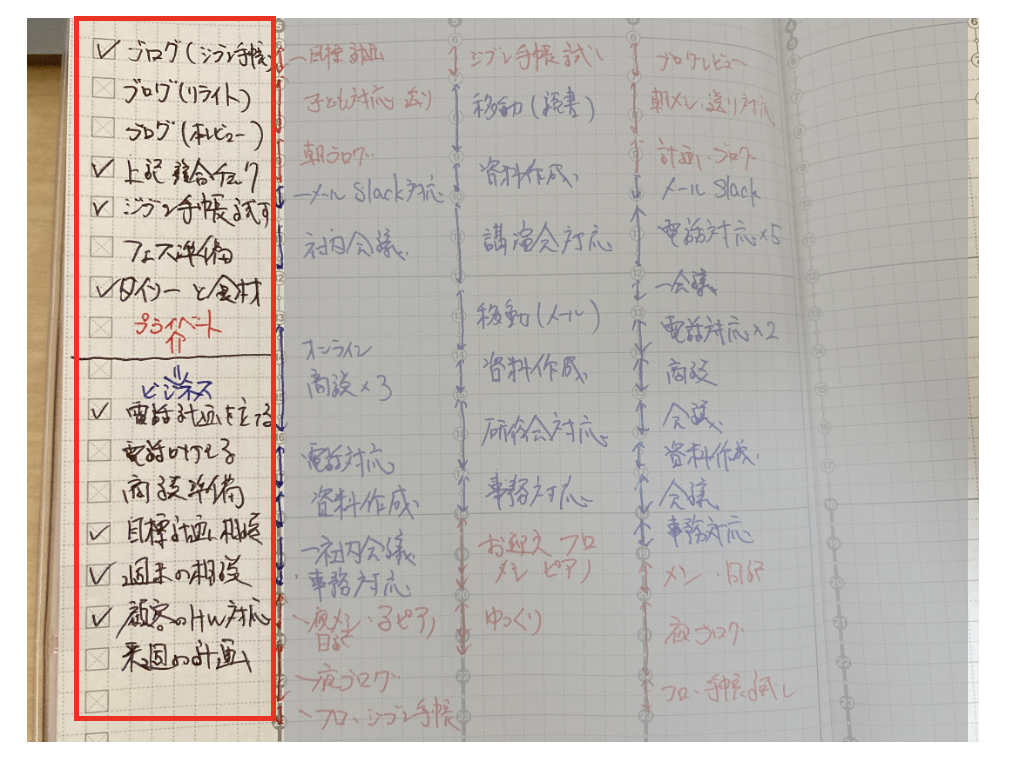 ブログ(ジブン手帳)
ブログ(リライト)
ブログ(本レビュー)
上記 競合チェック
ジブン手帳試す
フェス準備
ダイソーと食材
プライベート
ビジネス
電話計画を立てる
電話かける
商談準備
目標計画相談
週末の相談
顧客のHW対応
来週の計画
目標計画
子ども対応 送り
朝ブログ
メール Slack対応
社内会議
オンライン
商談×3
電話対応
資料作成
社内会議
事務対応
夜メシ・子ピアノ
日記
夜ブログ
フロ、ジブン手帳
ジブン手帳試し
移動(読書)
資料作成
講演会対応
移動(メール)
資料作成
研修会対応
事務対応
お迎え フロ
メシ ピアノ
ゆっくり
ブログレビュー
朝メシ・送り対応
計画・ブログ
メール Slack
電話対応×5
会議
電話対応×2
商談
会議
資料作成
会議
事務対応
メシ・日記
夜ブログ
フロ・手帳試し